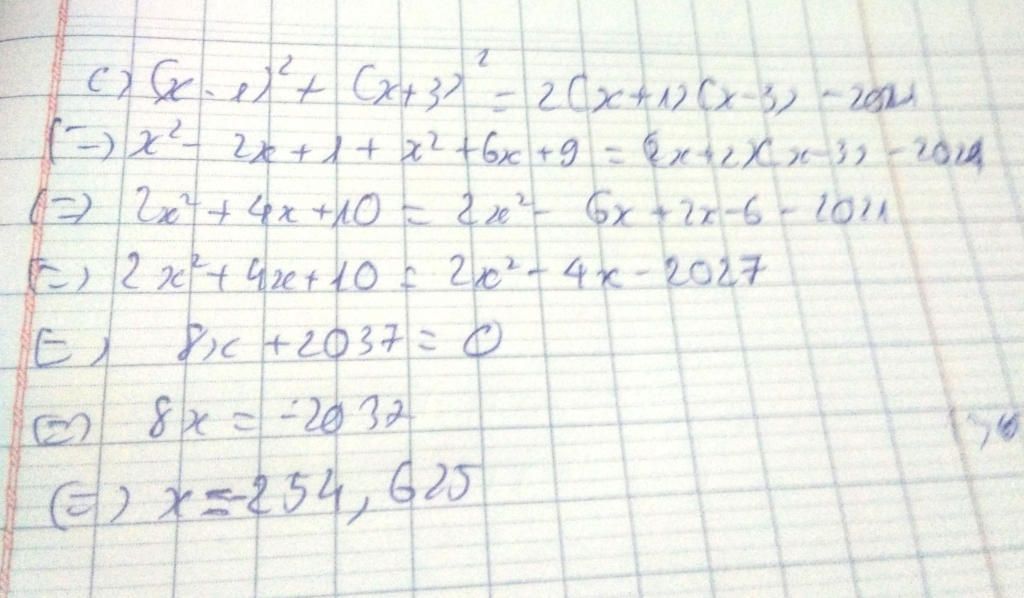 c) (x - 1)² + (x+3)² = 2(x+1)(x-3) - 2021
(=) x² - 2x + 1 + x² + 6x + 9 = (2x+2)(x-3) - 2021
(=) 2x² + 4x + 10 = 2x² - 6x + 2x - 6 - 2021
(=) 2x² + 4x + 10 = 2x² - 4x - 2027
(=) 8x + 2037 = 0
(=) 8x = -2037
(=) x = -254,625